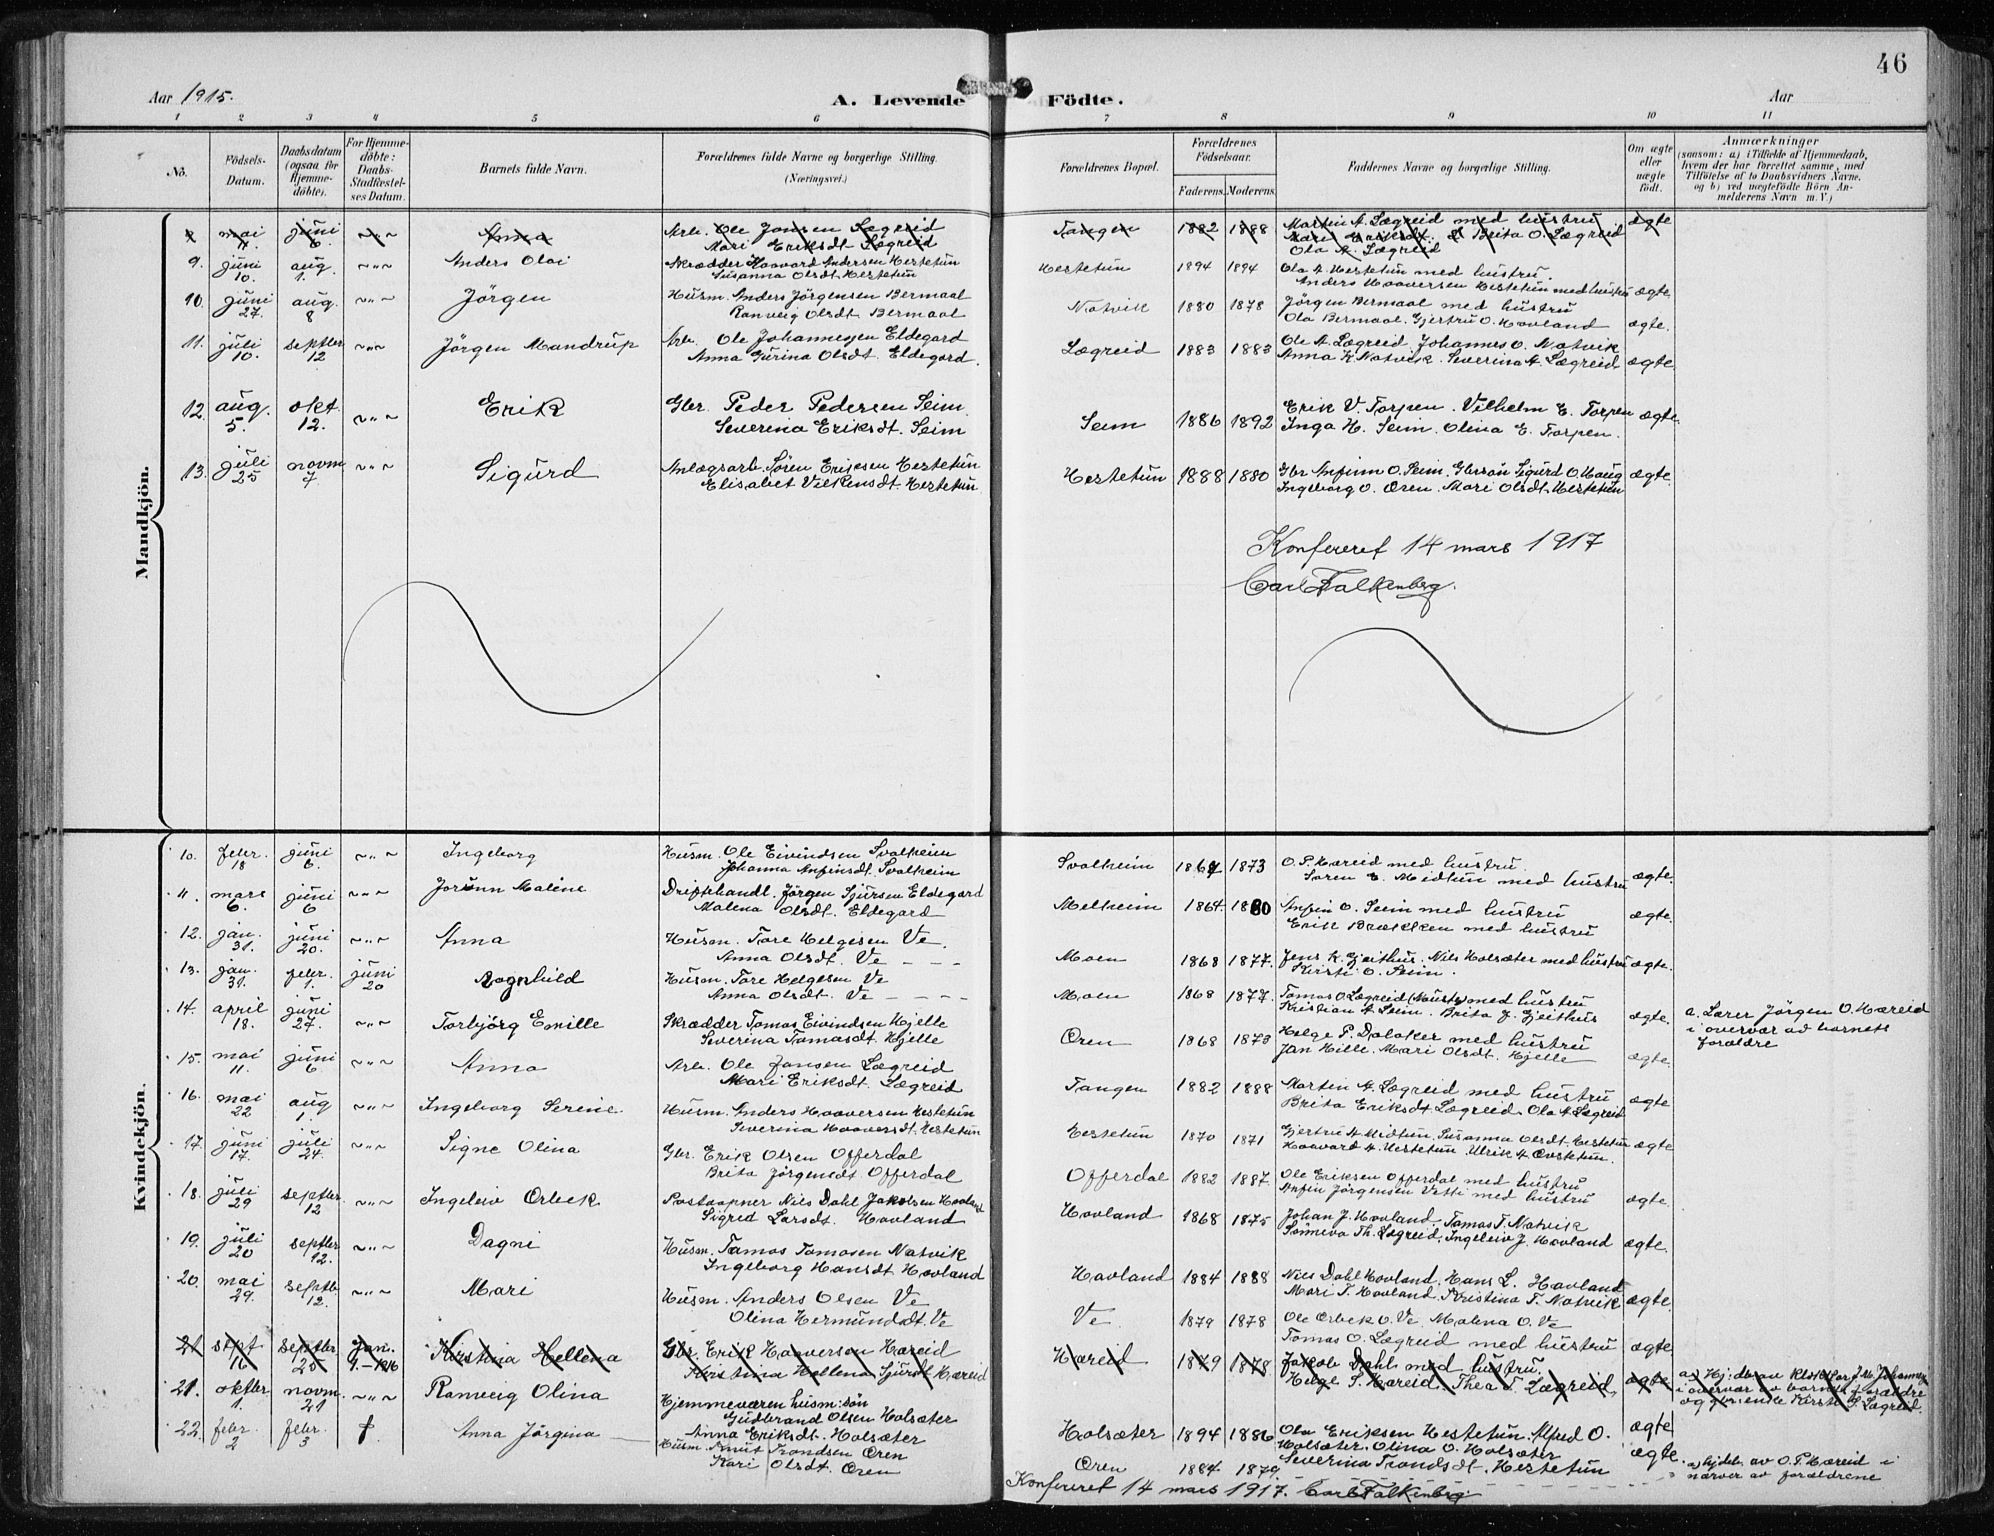 46
Aar 1915.
A. Levende Födte.
Aar
1 2 3 4 5 6 7 8 9 10 11
No.
Födsels-Datum.
Daabsdatum (ogsaa for Hjemmedöbte).
For Hjemmedöbte: Daabs-Stadfæstelses Datum.
Barnets fulde Navn.
Forældrenes fulde Navne og borgerlige Stilling.
(Næringsvei.)
Forældrenes Bopæl.
Forældrenes Födselsaar.
Faderens. Moderens.
Faddernes Navne og borgerlige Stilling.
Om ægte eller uægte födt.
Anmærkninger
(saasom: a) i Tilfælde af Hjemmedaab, hvem der har forrettet samme, med Tilföielse af to Daabsvidners Navne. og b) ved uægtefödte Börn Anmelderens Navn m. V.)
Mandkjön.
mai 11. juni 6. ~"~ Anna Arb. Ole Jansen Lægreid Tangen 1882 1888 Martin A. Lægreid med hustru ægte
Mari Eriksdt Lægreid Brita O. Lægreid
Ola A. Lægreid
9. juni 10. aug. 1. ~"~ Anders Olai Skrædder Haavard Andersen Hestetun Hestetun 1894 1894 Ola A. Hestetun med hustru.
Susanna Olsdt. Hestetun Anders Haaversen Hestetun med hustru ægte
10. juni 27. aug. 8 ~"~ Jörgen Husm. Anders Jörgensen Bermaal Natvik 1880 1878 Jörgen Bermaal med hustru
Ranveig Olsdt Bermaal Ola Bermaal. Gjertru O. Hovland ægte.
11. juli 10. septbr 12 ~"~ Jörgen Mandrup Arb. Ole Johannesen Eldegard Lægreid 1883 1883 Ole A. Lægreid. Johannes O. Natvik
Anna Gurina Olsdt. Eldegard. Anna K. Natvik. Severina A. Lægreid ægte.
12. aug. 5. okt. 12. ~"~ Erik Gbr. Peder Pedersen Seim Seim 1886 1892 Erik V. Torpen. Vilhelm E. Torpen ægte
Severina Eriksdt. Seim Inga H. Seim. Olina E. Torpen.
13. juli 25 novm 7 ~"~ Sigurd Anlægsarb. Sören Eriksen Hestetun Hestetun 1888 1880 Gbr Anfinn O. Seim. Gbrsön Sigurd O. Haug ægte.
Elisabet Vilkensdt. Hestetun Ingeborg O. Øren. Mari Olsdt. Hestetun
Konfereret 14 mars 1917
Carl Falkenberg.
Kvindekjön.
10. febr. 18 juni 6. ~"~ Ingeborg Husm. Ole Eivindsen Svalheim Svalheim 1867 1873 O. P. Hæreid med hustru
Johanna Anfinsdt. Svalheim Sören E. Midtun med hustru ægte.
11. mars 6. juni 6 ~"~ Jorunn Maline Driftehandl. Jörgen Sjursen Eldegard Melheim 1864. 1880 Anfin O. Seim med hustru ægte.
Malena Olsdt. Eldegard Erik Brækken med hustru
12. jan. 31. juni 20. ~"~ Anna Husm. Tore Helgesen Ve Moen 1868 1877. Jens K. Gjeithus. Nils Holsæter med hustru ægte.
Anna Olsdt. Ve Kirsti O. Seim.
13. jan. 31. febr. 1. juni 20 Ragnhild Husm. Tore Helgesen Ve Moen 1868 1877. Tomas O. Lægreid med hustru
Anna Olsdt. Ve Kristian A. Seim. Brita J. Gjeithus ægte. a. Lærer Jörgen O. Hæreid
i overvær av barnets
forældre
14. april 18. juni 27. ~"~ Torbjörg Emilie Skrædder Tomas Eivindsen Hjelle Øren 1868 1873 Helge P. Dalaker med hustru
Severina Tomasdt. Hjelle Jan Hille. Mari Olsdt. Hjelle ægte.
15. mai 11. juni 6 ~"~ Anna Arb. Ole Jansen Lægreid Tangen 1882 1888 Martin A. Lægreid med hustru
Mari Eriksdt. Lægreid Brita Eriksdt Lægreid. Ola A. Lægreid ægte
16. mai 22 aug 1. ~"~ Ingeborg Serine Husm. Anders Haaversen Hestetun Hestetun 1870 1871 Gjertru A. Midtun. Susanna Olsdt. Hestetun ægte
Severina Haaversdt. Hestetun Haavard A. Hestetun. Ulrik A. Øvstetun.
17. juni 17. juli 24. ~"~ Signe Olina Gbr. Erik Olsen Offerdal Offerdal 1882 1887. Ole Eriksen Offerdal med hustru
Brita Jörgensdt. Offerdal Anfin Jörgensen Vetti med hustru ægte.
18. juli 29 septbr 12 ~"~ Ingeleiv Orbek Postaapner Nils Dahl Jakobsen Hovland Hovland 1868 1875 Johan J. Hovland. Tomas T. Natvik
Sigrid Larsdt. Hovland Sönneva Th. Lægreid. Ingeleiv J. Hovland ægte.
19. juli 20 septbr 12. ~"~ Dagni Husm. Tomas Tomasen Natvik Hovland 1884 1888 Nils Dahl Hovland. Hans L. Hovland
Ingeborg Hansdt Hovland Mari T. Hovland. Kristina T. Natvik ægte.
20. mai 29. septbr 12. ~"~ Mari Husm. Anders Olsen Ve Ve 1879 1878 Ole Orbek O. Ve. Malena O. Ve
Olina Hermundsdt. Ve Tomas O. Lægreid med hustru ægte
21 sept 16 septbr 25 Jan. 9.-1916 Kristina Hellena Gbr. Erik Haaversen Hæreid Hæreid 1879 1878 Jakob Dahl med hustru
Kristina Hellena Sjursdt Hæreid Helge S. Hæreid. Thea T. Lægreid ægte a) Hj: db. av Klokker J. M. Johannes
i overvær av barnets forældre
og enke Kirsti S. Lægreid.
21. oktbr 1. novm 21 ~"~ Ranveig Olina Hjemmeværen husm: sön
Gudbrand Olsen Holsæter Holsæter 1894 1886 Ola Eriksen Hestetun. Alfred O. ægte
Anna Eriksdt. Holsæter Holsæter. Olina O. Holsæter
22. febr. 2 febr. 3 † Anna Jörgina Husm. Knut Trondsen Øren Øren 1884 1879 Severina Trondsdt. Hestetun ægte. a) hjdb. av O. P. Hæreid i
Kari Olsdt. Øren nærvær av forældrene
Konfereret 14 mars 1917. Carl Falkenberg